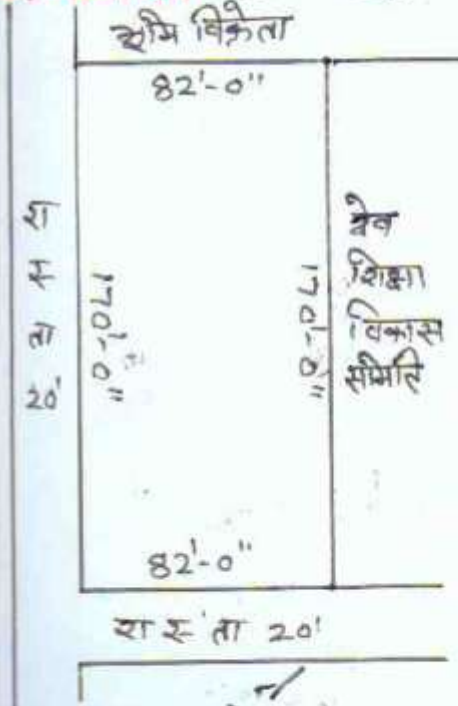 भूमि विक्रेता
82'-0"
रा
स्
ता
20'
170'-0"
170'-0"
देव
शिक्षा
विकास
समिति
82'-0"
रास्ता 20'